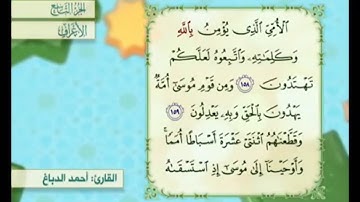 الجزء التاسع
الأعراف
ٱلْأُمِّىِّ ٱلَّذِى يُؤْمِنُ بِٱللَّهِ
وَكَلِمَٰتِهِۦ وَٱتَّبِعُوهُ لَعَلَّكُمْ
تَهْتَدُونَ ١٥٨ وَمِن قَوْمِ مُوسَىٰٓ أُمَّةٌ
يَهْدُونَ بِٱلْحَقِّ وَبِهِۦ يَعْدِلُونَ ١٥٩
وَقَطَّعْنَٰهُمُ ٱثْنَتَىْ عَشْرَةَ أَسْبَاطًا أُمَمًا ۚ
وَأَوْحَيْنَآ إِلَىٰ مُوسَىٰٓ إِذِ ٱسْتَسْقَىٰهُ
القارئ: أحمد الدباغ